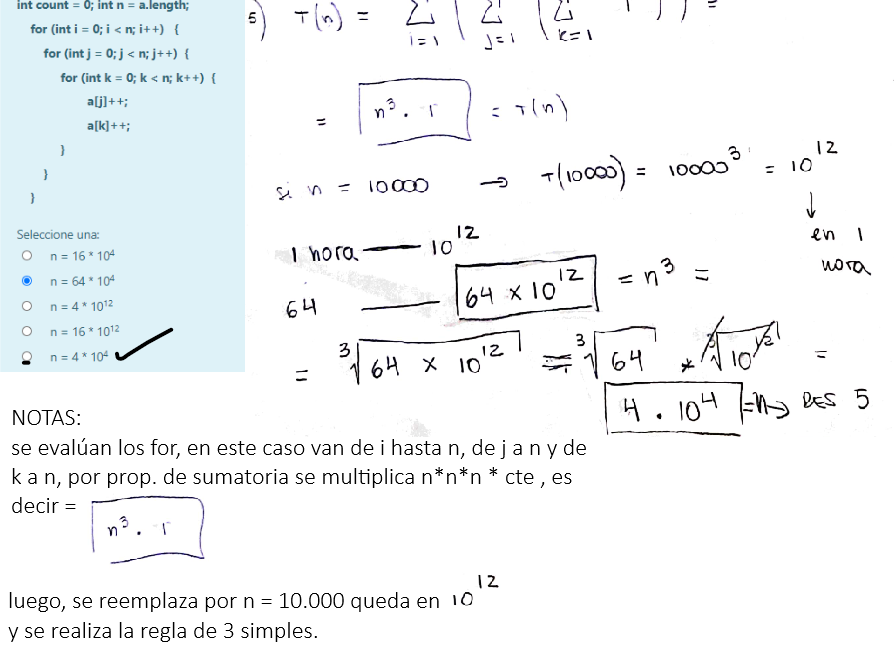 int count = 0; int n = a.length;
for (int i = 0; i < n; i++) {
for (int j = 0; j < n; j++) {
for (int k = 0; k < n; k++) {
a[j]++;
a[k]++;
}
}
}
Seleccione una:
n = 16 * 10⁴
n = 64 * 10⁴
n = 4 * 10¹²
n = 16 * 10¹²
n = 4 * 10⁴
5) T(n) = Σ i=1 ( Σ j=1 ( Σ k=1 1 ) ) =
= n³ . 1 = T(n)
si n = 10000 → T(10000) = 10000³ = 10¹²
↓
en 1
hora
1 hora — 10¹²
64 — 64 x 10¹² = n³ =
= ³√64 x 10¹² = ³√64 * ³√10¹² =
4 . 10⁴ = n → RES 5
NOTAS:
se evalúan los for, en este caso van de i hasta n, de j a n y de
k a n, por prop. de sumatoria se multiplica n*n*n * cte , es
decir = n³ . 1
luego, se reemplaza por n = 10.000 queda en 10¹²
y se realiza la regla de 3 simples.